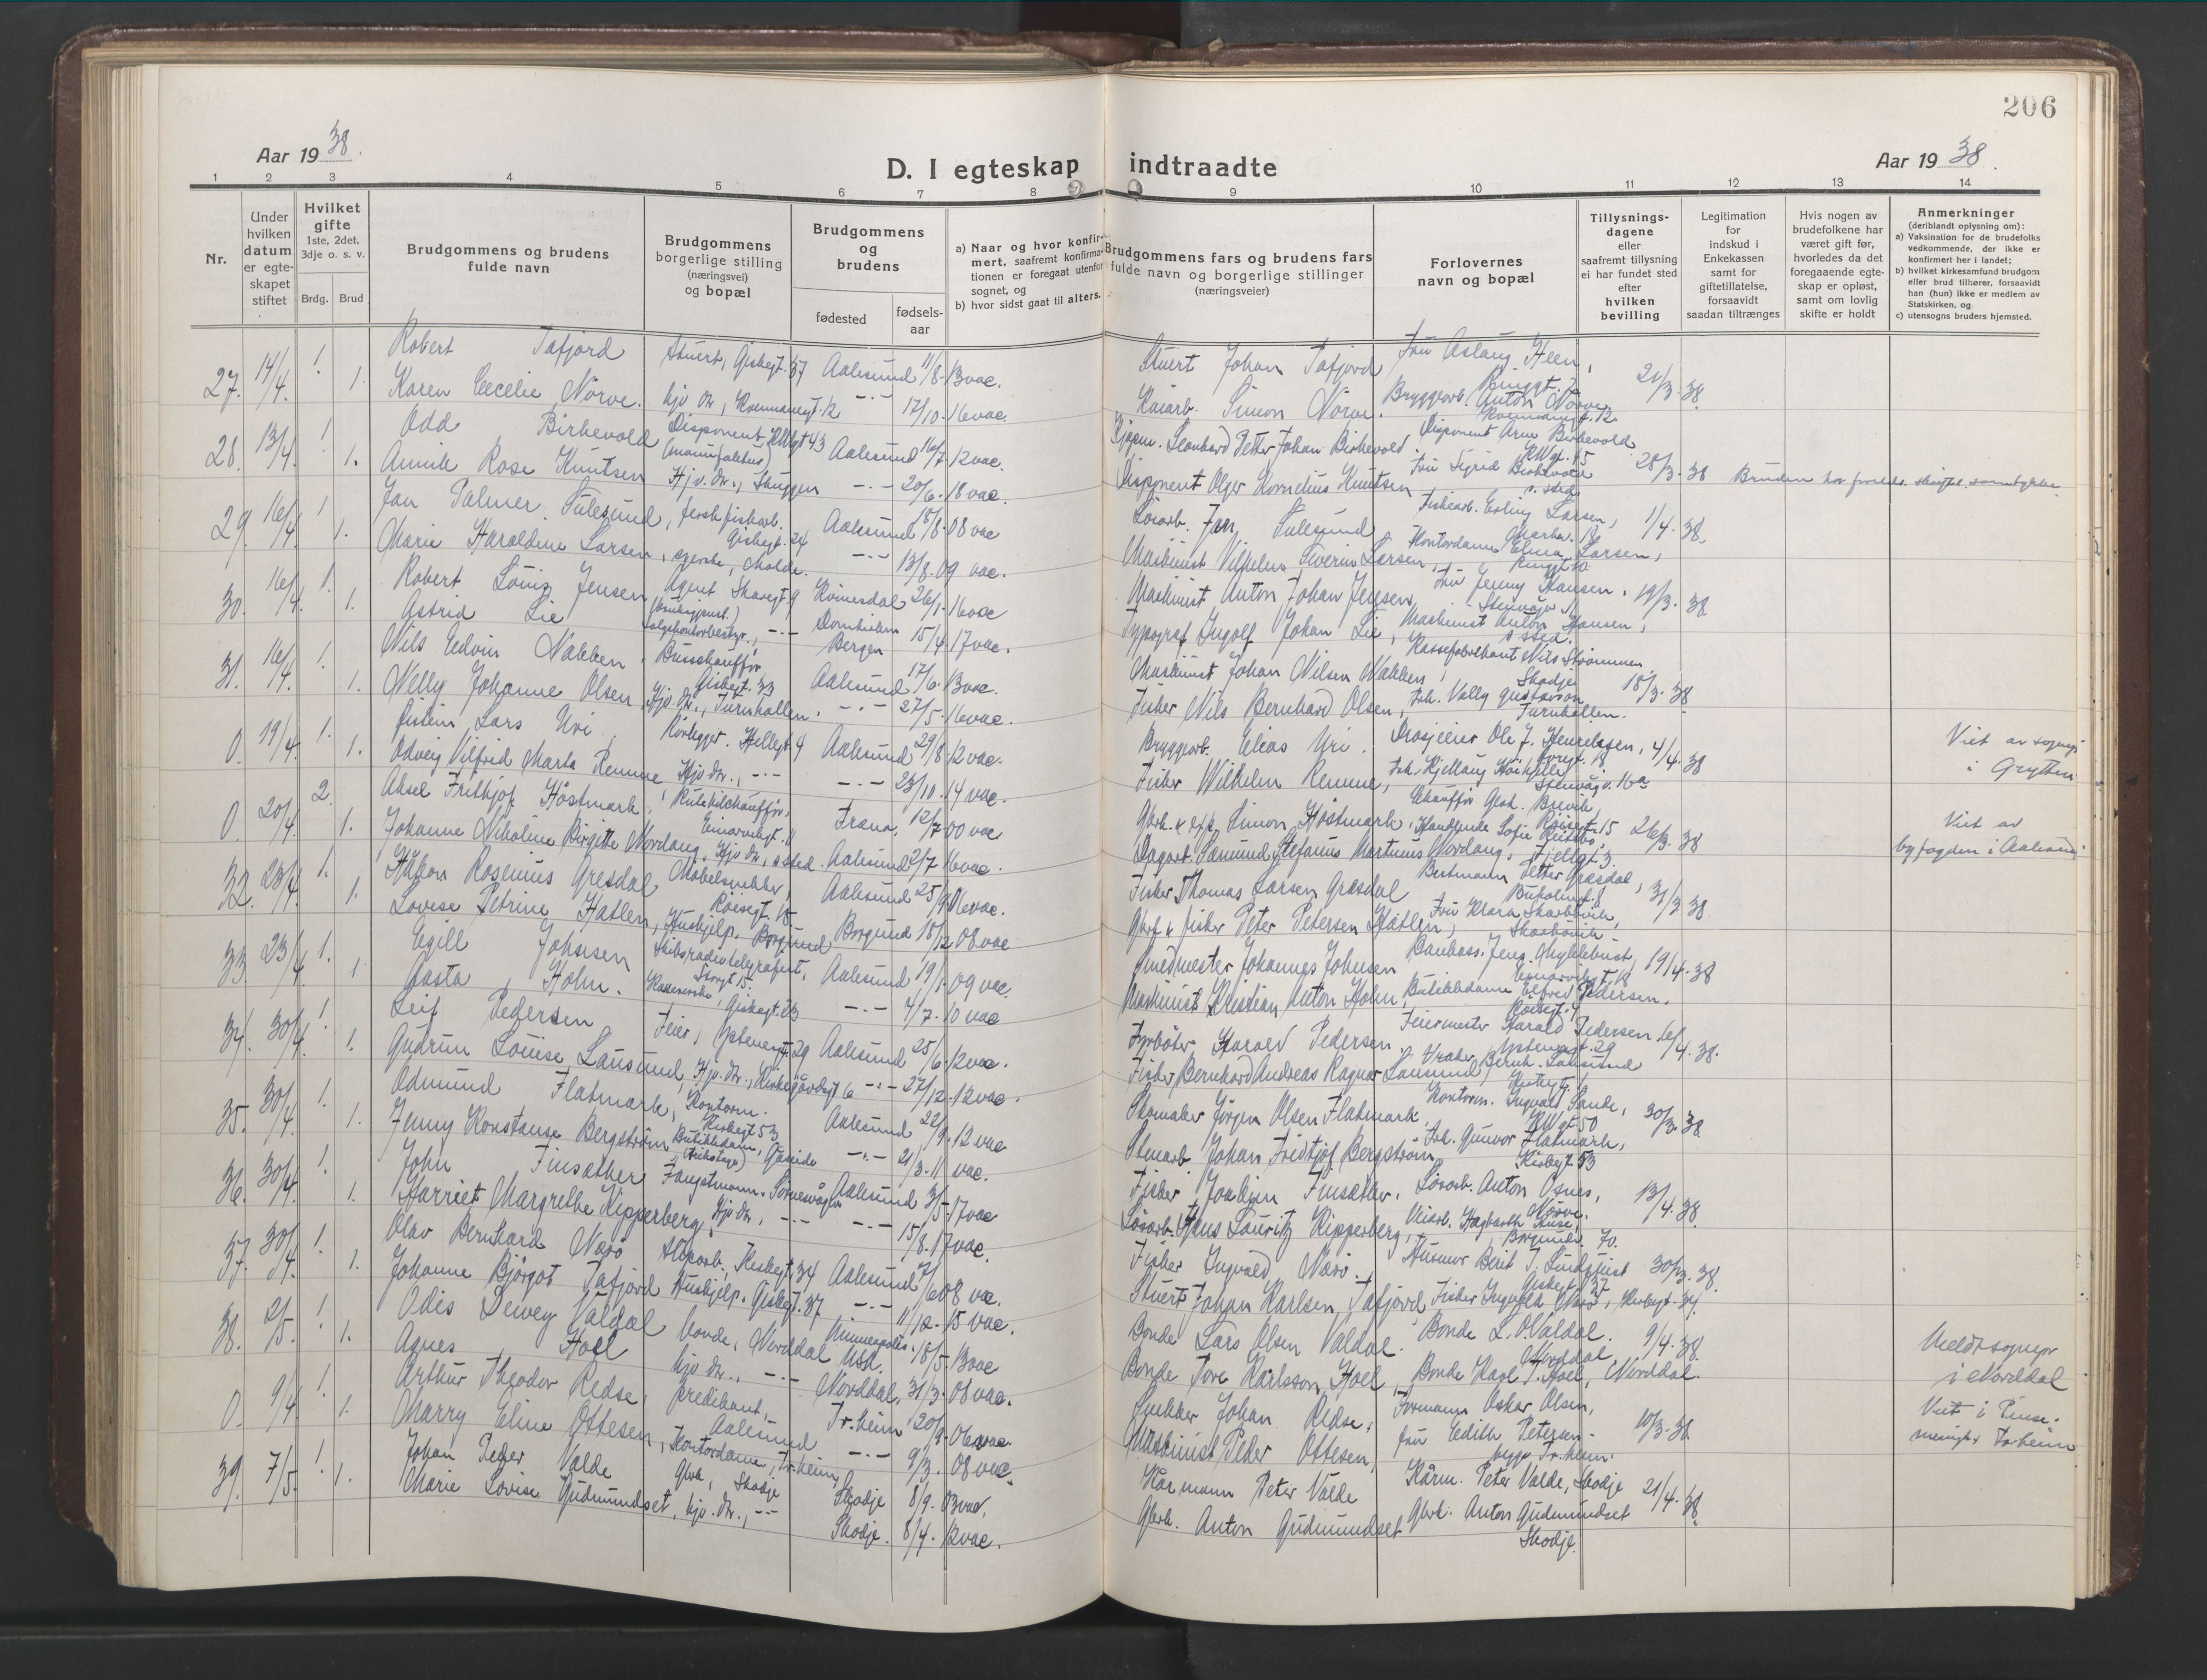 206
Aar 1938.
D. I egteskap indtraadte
Aar 1938.
1 2 3 4 5 6 7 8 9 10 11 12 13 14
Nr.
Under hvilken datum er egteskapet stiftet
Hvilket gifte 1ste, 2det, 3dje o. s. v.
Brdg. Brud
Brudgommens og brudens fulde navn
Brudgommens borgerlige stilling (næringsvei) og bopæl
Brudgommens og brudens
fødested
fødsels-aar
a) Naar og hvor konfirmert, saafremt konfirmationen er foregaat utenfor sognet, og
b) hvor sidst gaat til alters.
Brudgommens fars og brudens fars fulde navn og borgerlige stillinger (næringsveier)
Forlovernes navn og bopæl
Tillysnings-dagene eller saafremt tillysning ei har fundet sted efter hvilken bevilling
Legitimation for indskud i Enkekassen samt for giftetillatelse, forsaavidt saadan tiltrænges
Hvis nogen av brudefolkene har været gift før, hvorledes da det foregaaende egteskap er opløst, samt om lovlig skifte er holdt
Anmerkninger (deriblandt oplysning om):
a) Vaksination for de brudefolks vedkommende, der ikke er konfirmert her i landet;
b) hvilket kirkesamfund brudgom eller brud tilhører, forsaavidt han (hun) ikke er medlem av Statskirken, og
c) utensogns bruders hjemsted.
27. 14/4. 1. Robert Tafjord Stuert, Giskegt. 37 Aalesund 11/8. 13 vac. Stuert Johan Tafjord Fru Aslaug Heen, Ringgt. 21/3. 38
1. Karen Cecelie Nörve. hjv. dtr., 12 -"- 17/10. 16 vac. Kaiarb. Simon Nörve. Bryggearb. Anton Nörve. 12.
28. 13/4. 1. Odd Birkevold Disponent 43 Aalesund 16/7 12 vac. Kjøpm. Leonhard Petter Johan Birkevold. Disponent Arne Birkevold 28/3. 38
1. Annik Rose Knutsen Hjv. dtr., Skuggen -"- 20/6. 18 vac. Disponent Olger Kornelius Knutsen Fru Sigrid Birkevold s. sted. Bruden har foreld. skriftl. samtykke.
29. 16/4. 1. Jan Palmer Sulesund, ferskfiskarb. Giskegt. 24 Aalesund 18/8. 08 vac Lösarb. Jan Sulesund Fiskearb. Erling Larsen, 1/4. 38.
1. Marie Haraldine Larsen, Molde. -"- 13/8. 09 vac. Maskinist Vilhelm Severin Larsen, Kontordame Elma Larsen, Ringgt 10.
30. 16/4. 1. Robert Louis Jensen Agent Skaregt. 9 Romsdal 26/1. 16 vac Maskinist Anton Johan Jensen, Fru Jenny Hansen. Stenvåg 19/3. 38
1. Astrid Lie -"- Bergen 15/4. 17 vac. Typograf Ingolf Johan Lie, Maskinist Anton Hansen, s. sted.
31. 16/4. 1. Nils Edvin Nakken Busschauffør Giskegt. 33 Aalesund 17/6. 13 vac. Maskinist Johan Nilsen Nakken, Kassefabrikant Nils Strømmen, Skodje 18/3. 38
1. Nelly Johanne Olsen, Hjv. dtr., Turnhallen. -"- 27/5. 16 vac. Fisker Nils Bernhard Olsen, Frk. Vally Gustavson Turnhallen.
0. 19/4. 1. Øistein Lars Uri, Rörlegger. Hellegt. 4 Aalesund 29/8 12 vac. Bryggearb. Elias Uri. Drosjeeier Ole J. Henriksen, 4/4. 38 Viet av sognepr. i Grytten
1. Odveig Vilfrid Marta Remme Hjv. dtr., -"- -"- 23/10. 14 vac. Fisker Wilhelm Remme, Frk. Kjellaug Stenvåg. 16a
0. 20/4. 2. Aksel Fritkjof Höstmark, Rutebilchauffør, Einarvikgt. 11 Fræna, 12/7 00 vac Gbrk. Simon Höstmark, Chauffør Gerh. Breivik, 15 26/3. 38 Viet av byfogden i Aalesund
1. Johanne Nikoline Birgitte Nordang, Hjv dtr, s. sted. Aalesund 2/7 16 vac. Dagarb. Samund Stefanus Martinus Nordang. Handlende Sofie Fjellgt. 3.
32. 23/4. 1. Håkon Rosenius Gresdal Möbelsnekker, Röisegt. 18. Aalesund 25/9 06 vac. Fisker Thomas Larsen Græsdal Bestmann Petter Græsdal, 31/3 38
1. Lovise Petrine Hatlen, Hushjelp. Borgund Borgund 18/12 08 vac Gbrk. & fisker Peter Petersen Hatlen, Fru Klara Skarbövik, Skarbövik
33. 23/4. 1. Egill Johnsen Skibsradiotelegrafist, Storgt 15. Aalesund 19/1. 09 vac. Smedmester Johannes Johnsen Banbass. Jens Myklebust, 19/4. 38
1 Aasta Holm. Kassererske, Giskegt. 23 -"- 4/7. 10 vac Maskinist Kristian Anton Holm, Butikkdame Elfrid Pedersen.
34. 30/4. 1. Leif Pedersen Feier, 29 Aalesund 25/6. 12 vac. Fyrböter Harald Pedersen. Feiermester Harald Pedersen 29 16/4. 38.
1. Gudrun Louise Lausund, Hjv. dtr., Kirkegårdsgt 6 -"- 27/12. 12 vac. Fisker Bernhard Andreas Ragnar Lausund, Vraker Bernh. Lausund
35. 30/4. 1. Odmund Flatmark, Kontorm. Kirkegt 53 Aalesund 22/9. 12 vac Skomaker Jörgen Olsen Flatmark, Kontorm. Ingvald Sande, 50 30/3. 38
1. Jenny Konstanse Bergström Butikkdam, -"- 21/3. 11 vac. Stenarb. Johan Fridtjof Bergström, Frk. Gunvor Flatmark, Kirkegt 53
36. 30/4. 1. John Finsæther Fangstmann. Aalesund 3/5. 17 vac Fisker Joakim Finsæther. Lösarb. Anton Osnes, Nörve. 13/4. 38
1. Harriet Margrethe Kipperberg, Hjv dtr, -"- -"- 15/8. 17 vac. Lösarb. Hans Lauritz Kipperberg, 70.
37. 30/4. 1. Olav Bernhard Nærö Slipparb., Kirkegt. 34 Aalesund 7/6 08 vac. Fisker Ingvald Nærö. Husmor Berit J. Lindquist Giskegt 37 30/3. 38.
1. Johanne Björgot Tafjord Hushjelp. Giskegt. 37 -"- 11/12. 15 vac. Stuert Johan Karlsen Tafjord, Fisker Ingvald Nærö, Kirkegt. 34.
38. 2/5. 1. Odis Dewey Valdal Bonde, Norddal Minneapolis, USA. 18/5. 13 vac Bonde Lars Olsen Valdal. Bonde L. O. Valdal. Norddal 9/4. 38. Meldt sognepr i Norddal
1. Agnes Hoel hjv. dtr., -"- Norddal, 31/3. 08 vac. Bonde Tore Karlsson Hoel, Bonde Karl T. Hoel, Norddal.
0. 9/4. 1. Arthur Theodor Redse, predikant, Aalesund Tr.heim 20/9. 06 vac. Snekker Johan Redse, Formann Oskar Olsen, 10/3. 38 Viet i Pinsemenigh. Tr.heim
1. Marry Eline Ottesen, Kontordame, Tr.heim, -"- 9/3. 08 vac. Maskinist Peder Ottesen, Fru Edith Petersen. begge Tr.heim.
39. 7/5. 1. Johan Peder Valde Gbrk, Skodje Skodje 8/9. 03 vac, Kårmann Peter Valde Kårm. Peter Valde, Skodje 21/4. 38
1. Marie Lovise Gudmundset, hjv. dtr., -"- Skodje. 8/4. 12 vac. Gbrk. Anton Gudmundset Gbrk. Anton Gudmundset Skodje.